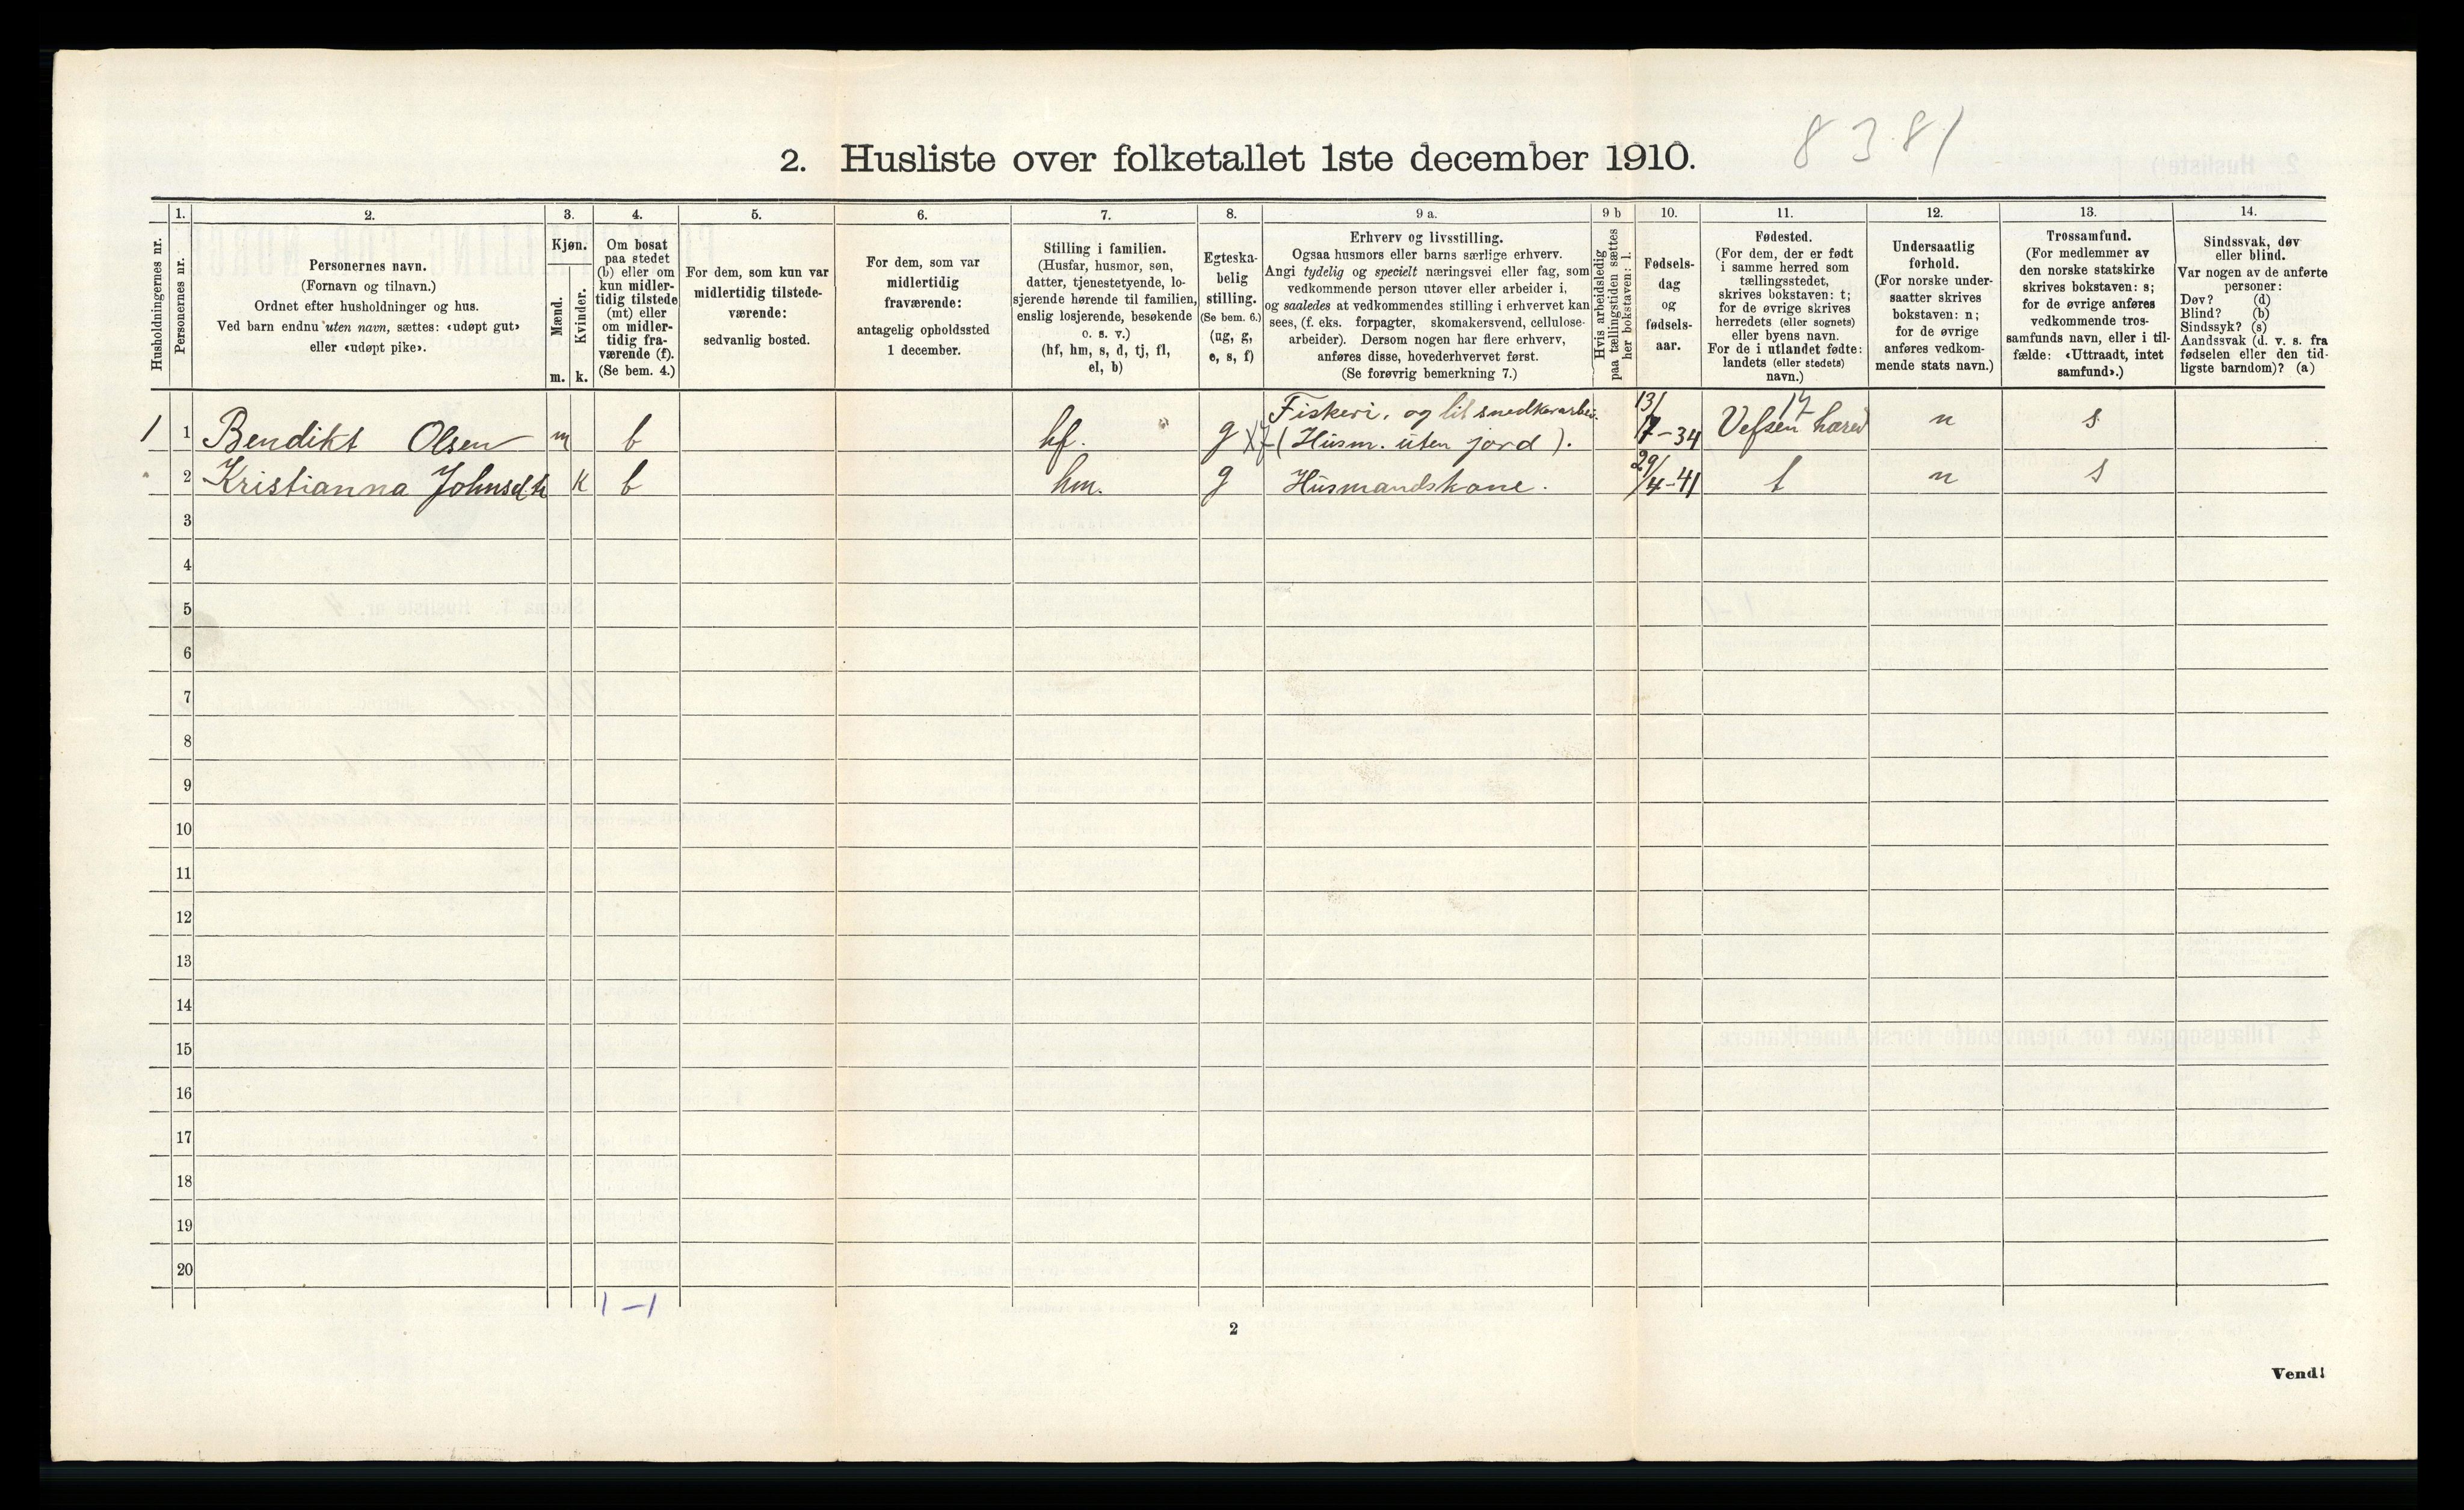 8381
2. Husliste over folketallet 1ste december 1910.
Husholdningernes nr.
1.
Personernes nr.
2.
Personernes navn.
(Fornavn og tilnavn.)
Ordnet efter husholdninger og hus.
Ved barn endnu uten navn, sættes: «udøpt gut»
eller «udøpt pike».
3.
Kjøn.
Mænd.
Kvinder.
m. k.
4.
Om bosat
paa stedet
(b) eller om
kun midler-
tidig tilstede
(mt) eller
om midler-
tidig fra-
værende (f).
(Se bem. 4.)
5.
For dem, som kun var
midlertidig tilstede-
værende:
sedvanlig bosted.
6.
For dem, som var
midlertidig
fraværende:
antagelig opholdssted
1 december.
7.
Stilling i familien.
(Husfar, husmor, søn,
datter, tjenestetyende, lo-
sjerende hørende til familien,
enslig losjerende, besøkende
o. s. v.)
(hf, hm, s, d, tj, fl,
el, b)
8.
Egteska-
belig
stilling.
(Se bem. 6.)
(ug, g,
e, s, f)
9 a.
Erhverv og livsstilling.
Ogsaa husmors eller barns særlige erhverv.
Angi tydelig og specielt næringsvei eller fag, som
vedkommende person utøver eller arbeider i,
og saaledes at vedkommendes stilling i erhvervet kan
sees, (f. eks. forpagter, skomakersvend, cellulose-
arbeider). Dersom nogen har flere erhverv,
anføres disse, hovederhvervet først.
(Se forøvrig bemerkning 7.)
9 b
Hvis arbeidsledig
paa tællingstiden sættes
her bokstaven: l.
10.
Fødsels-
dag
og
fødsels-
aar.
11.
Fødested.
(For dem, der er født
i samme herred som
tællingsstedet,
skrives bokstaven: t;
for de øvrige skrives
herredets (eller sognets)
eller byens navn.
For de i utlandet fødte:
landets (eller stedets)
navn.)
12.
Undersaatlig
forhold.
(For norske under-
saatter skrives
bokstaven: n;
for de øvrige
anføres vedkom-
mende stats navn.)
13.
Trossamfund.
(For medlemmer av
den norske statskirke
skrives bokstaven: s;
for de øvrige anføres
vedkommende tros-
samfunds navn, eller i til-
fælde: «Uttraadt, intet
samfund».)
14.
Sindssvak, døv
eller blind.
Var nogen av de anførte
personer:
Døv? (d)
Blind? (b)
Sindssyk? (s)
Aandssvak (d. v. s. fra
fødselen eller den tid-
ligste barndom)? (a)
Fiskeri, og lit snedkerarbei. 13/ 17
1 1 Bendikt Olsen m b hf. g (Husm. uten jord). 7-34 Vefsen hæred n s
2 Kristianna Johnsdtr K b hm. g Husmandskone. 29/4-41 t n s
3
4
5
6
7
8
9
10
11
12
13
14
15
16
17
18
19
20
1-1
2
Vend!